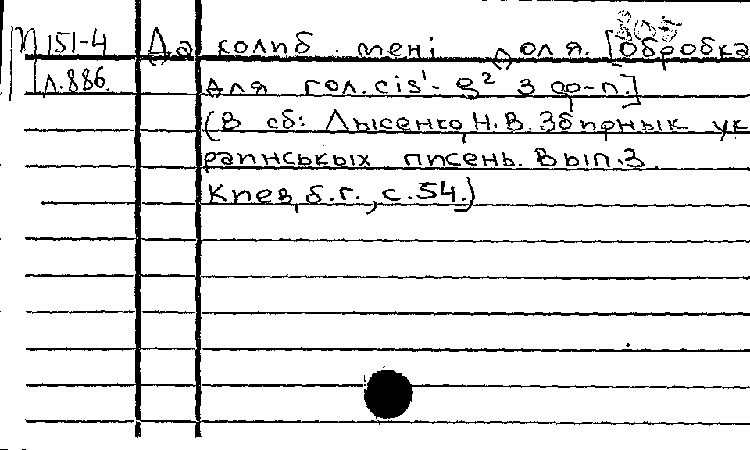 П 151-4 Да колиб мені доля. [Обробка
Л.886. для гол. cis¹- g² з ф-п.]
(В сб: Лысенко, Н.В. Збирнык ук
раинськых писень. Вып.3.
Киев, б.г., с.54.)